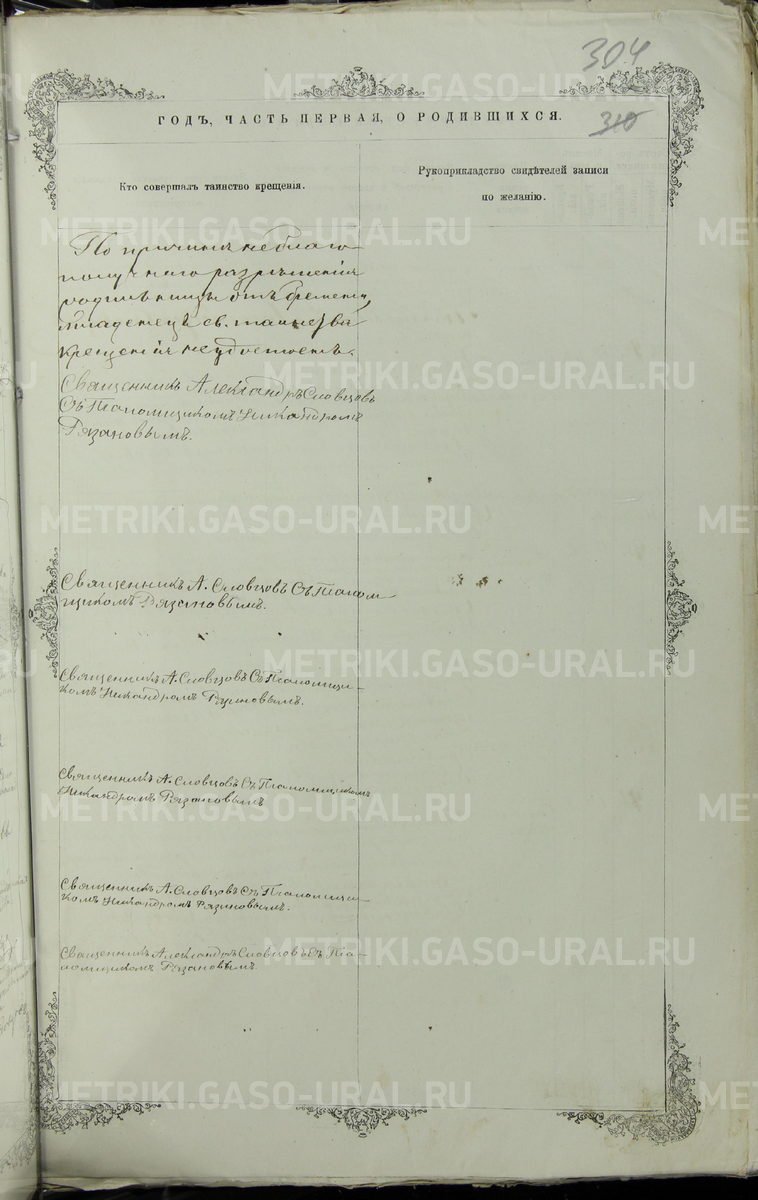 304
310
ГОДЪ, ЧАСТЬ ПЕРВАЯ, О РОДИВШИХСЯ.
Кто совершалъ таинство крещенія.
Рукоприкладство свидѣтелей записи
по желанію.
По причинѣ неблаго-
получнаго разрѣшенія
родильницы отъ бремени,
младенецъ св. таинства
крещенія неудостоенъ.
Священникъ Александръ Словцовъ
Съ Псаломщикомъ Никандромъ
Рязановымъ.
Священникъ А. Словцовъ Съ Псалом-
щикомъ Рязановымъ.
Священникъ А. Словцовъ Съ Псаломщи-
комъ Никандромъ Рязановымъ.
Священникъ А. Словцовъ Съ Псаломщикомъ
Никандромъ Рязановымъ
Священникъ А. Словцовъ Съ Псаломщи-
комъ Никандромъ Рязановымъ.
Священникъ Александръ Словцовъ Съ Пса-
ломщикомъ Рязановымъ.
METRIKI.GASO-URAL.RU